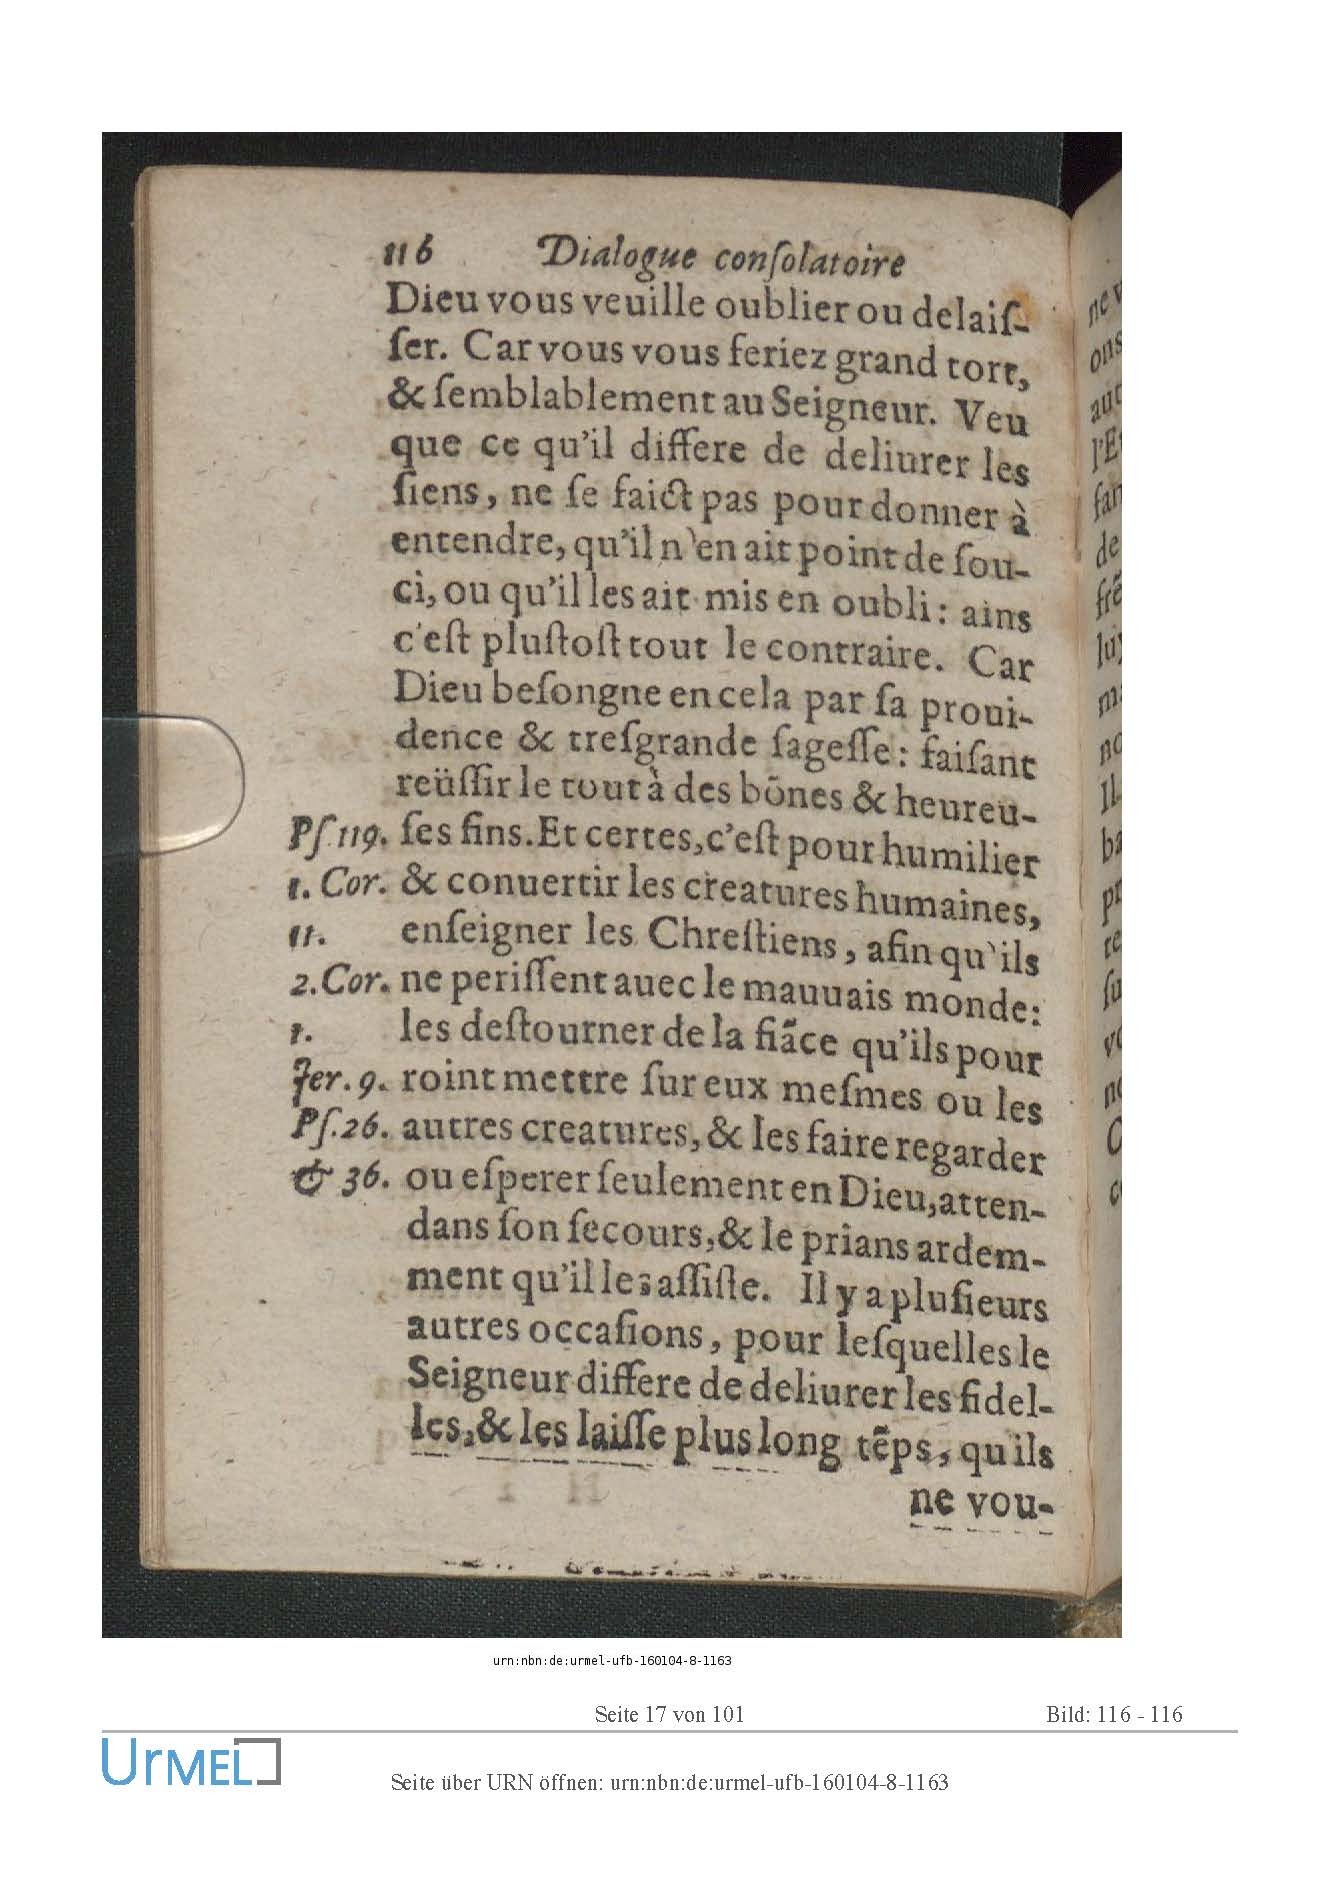 116 Dialogue conſolatoire
Dieu vous veuille oublier ou delaiſ-
ſer. Car vous vous feriez grand tort,
& ſemblablement au Seigneur. Veu
que ce qu'il differe de deliurer les
ſiens, ne ſe faict pas pour donner à
entendre, qu'il n'en ait point de ſou-
ci, ou qu'il les ait mis en oubli: ains
c'eſt pluſtoſt tout le contraire. Car
Dieu beſongne en cela par ſa proui-
dence & treſgrande ſageſſe: faiſant
reüſſir le tout à des bōnes & heureu-
Pſ. 119. ſes fins. Et certes, c'eſt pour humilier
1. Cor. & conuertir les creatures humaines,
11. enſeigner les Chreſtiens, afin qu'ils
2. Cor. ne periſſent auec le mauuais monde:
1. les deſtourner de la fiāce qu'ils pour
Jer. 9. roint mettre ſur eux meſmes ou les
Pſ. 26. autres creatures, & les faire regarder
& 36. ou eſperer ſeulement en Dieu, atten-
dans ſon ſecours, & le prians ardem-
ment qu'il les aſſiſte. Il y a pluſieurs
autres occaſions, pour leſquelles le
Seigneur differe de deliurer les fidel-
les, & les laiſſe plus long tēps, qu ils
ne vou-
urn:nbn:de:urmel-ufb-160104-8-1163
Seite 17 von 101 Bild: 116 - 116
UrMEL
Seite über URN öffnen: urn:nbn:de:urmel-ufb-160104-8-1163